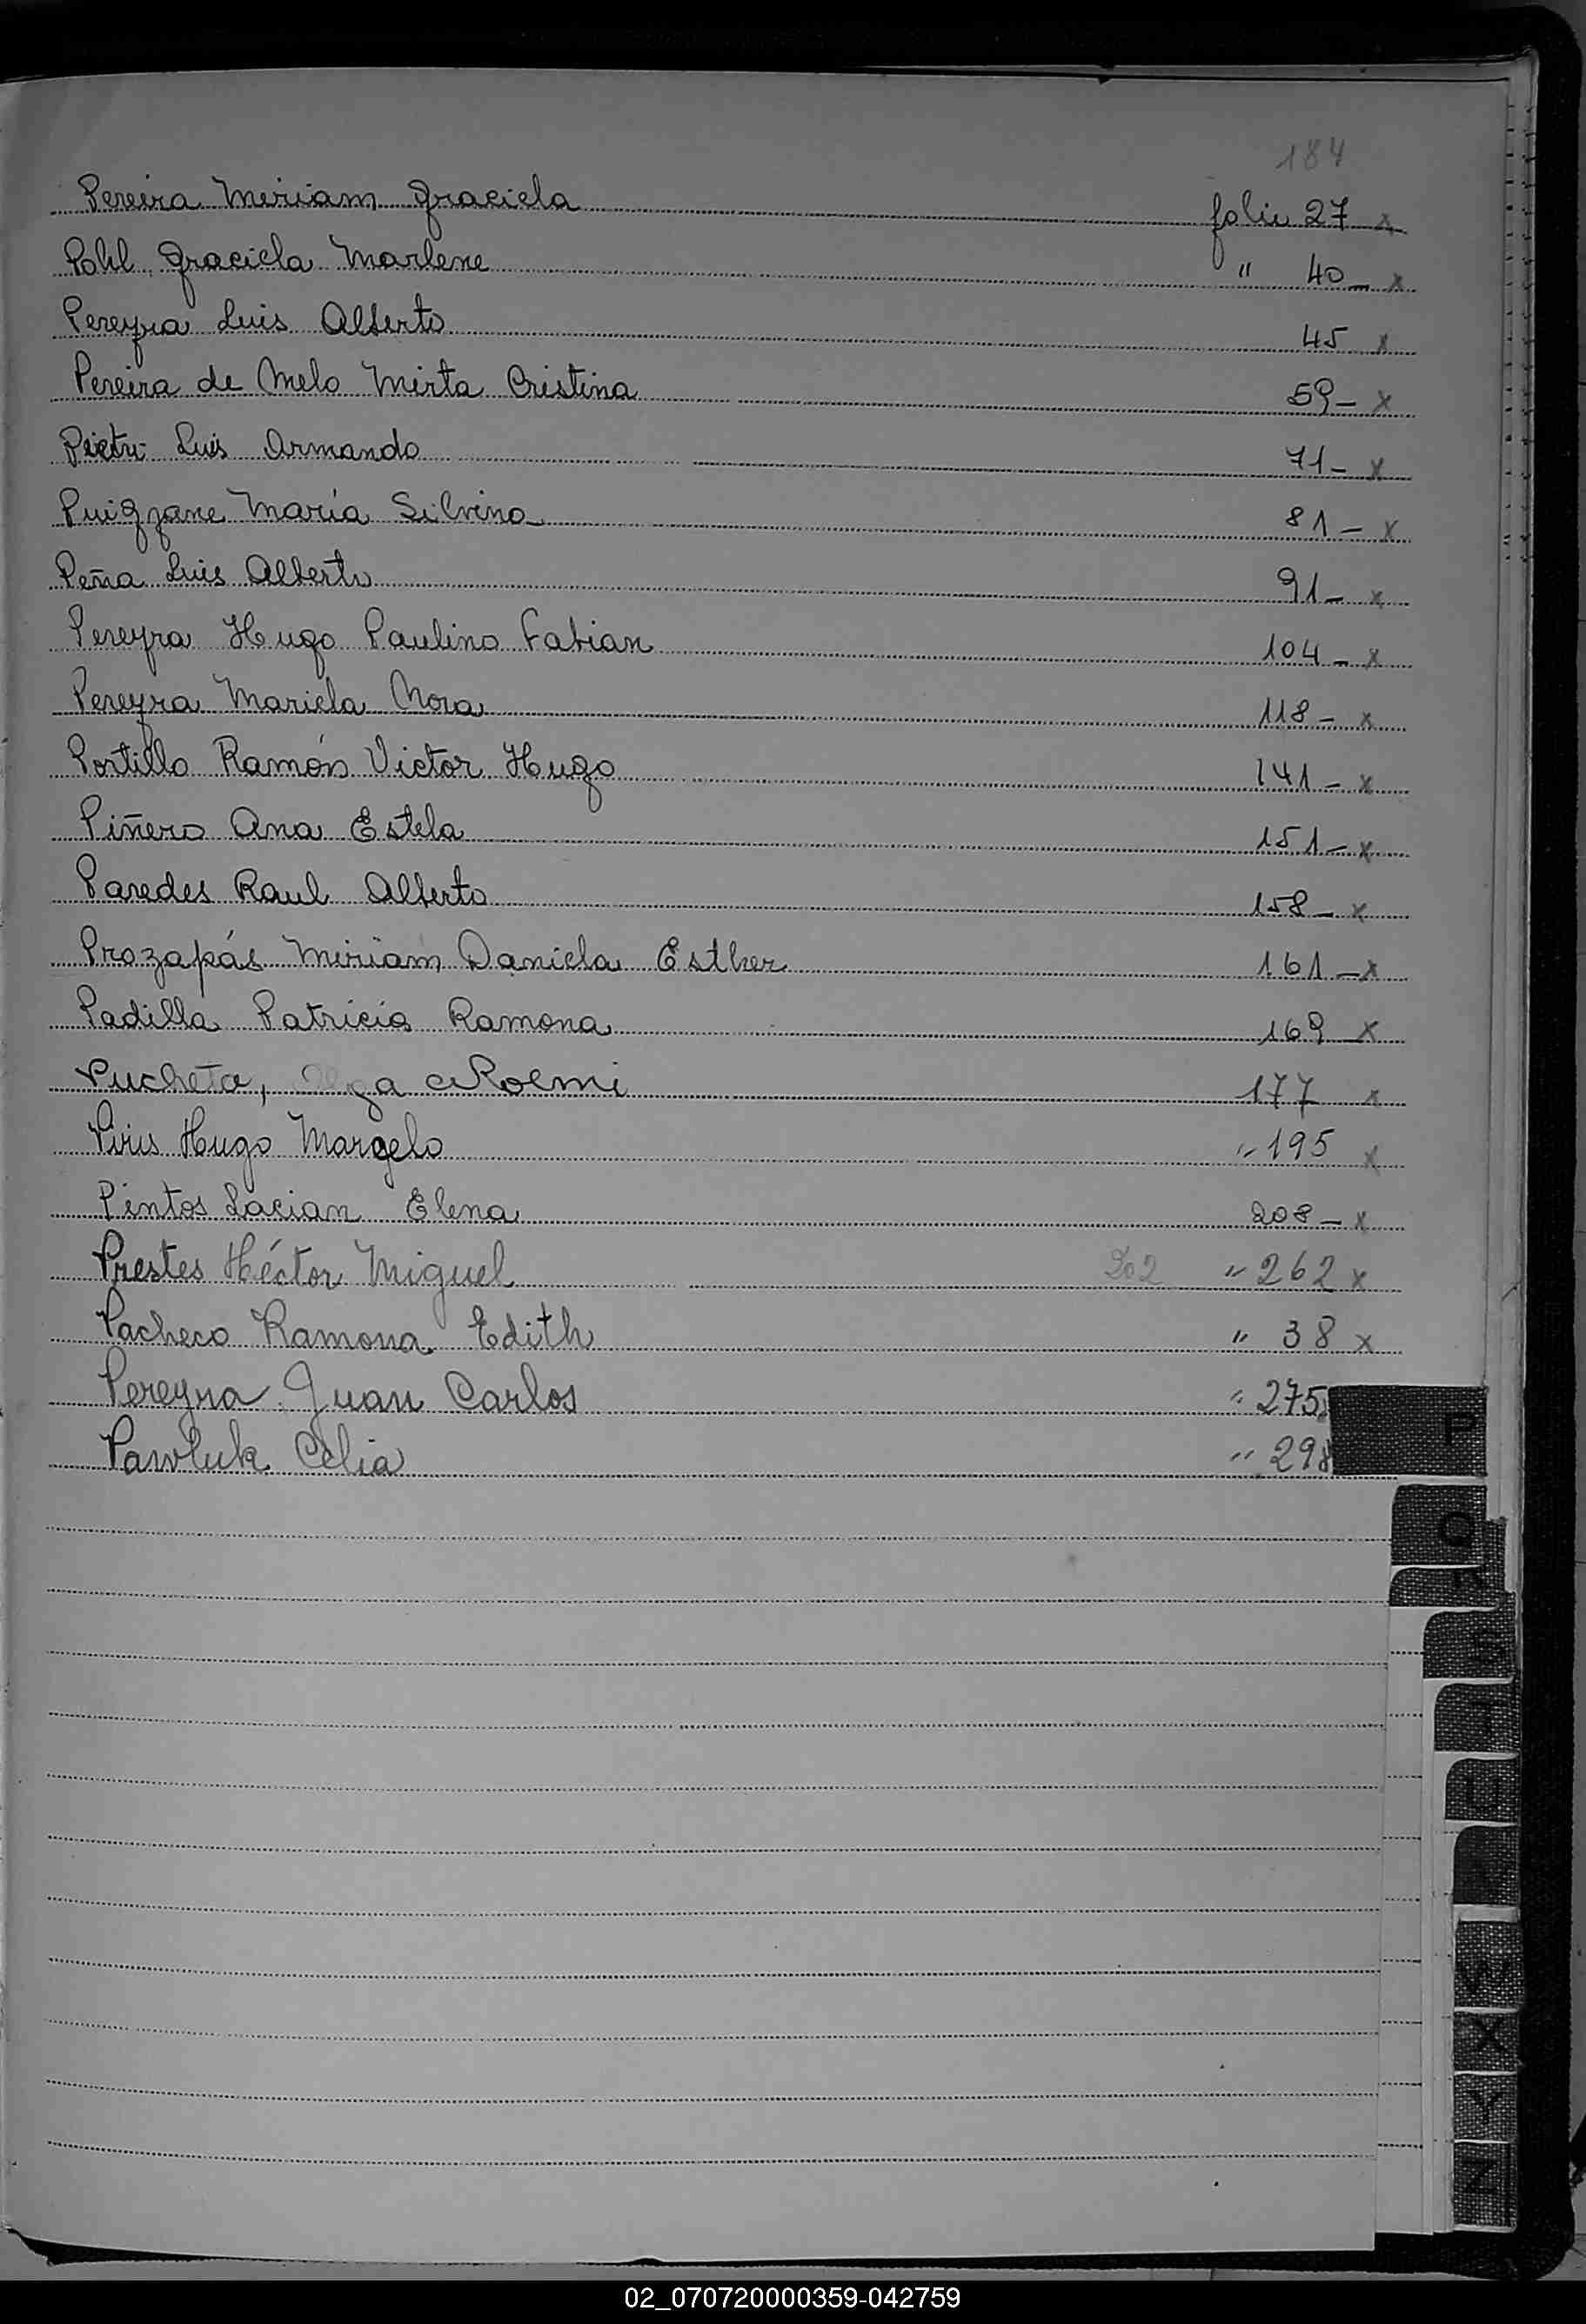 184
Pereira Miriam Graciela folio 27 x
Pohl Graciela Marlene " 40 - x
Pereyra Luis Alberto 45 x
Pereira de Melo Mirta Cristina 59 - x
Pietri Luis Armando 71 - x
María Silvina 81 - x
Peña Luis Alberto 91 - x
Pereyra Hugo Paulino Fabian 104 - x
Pereyra Mariela Nora 118 - x
Portillo Ramón Victor Hugo 141 - x
Piñero Ana Estela 151 - x
Paredes Raul Alberto 158 - x
Prozapás Miriam Daniela Esther 161 - x
Padilla Patricia Ramona 169 x
Pucheta, Olga Noemi 177 x
Piris Hugo Margelo " 195 x
Pintos Elena 208 - x
Prestes Héctor Miguel 202 " 262 x
Pacheco Ramona Edith " 38 x
Pereyra Juan Carlos " 275
Pawluk Celia " 298
P
Q
R
S
T
U
W
X
Y
Z
02_070720000359-042759